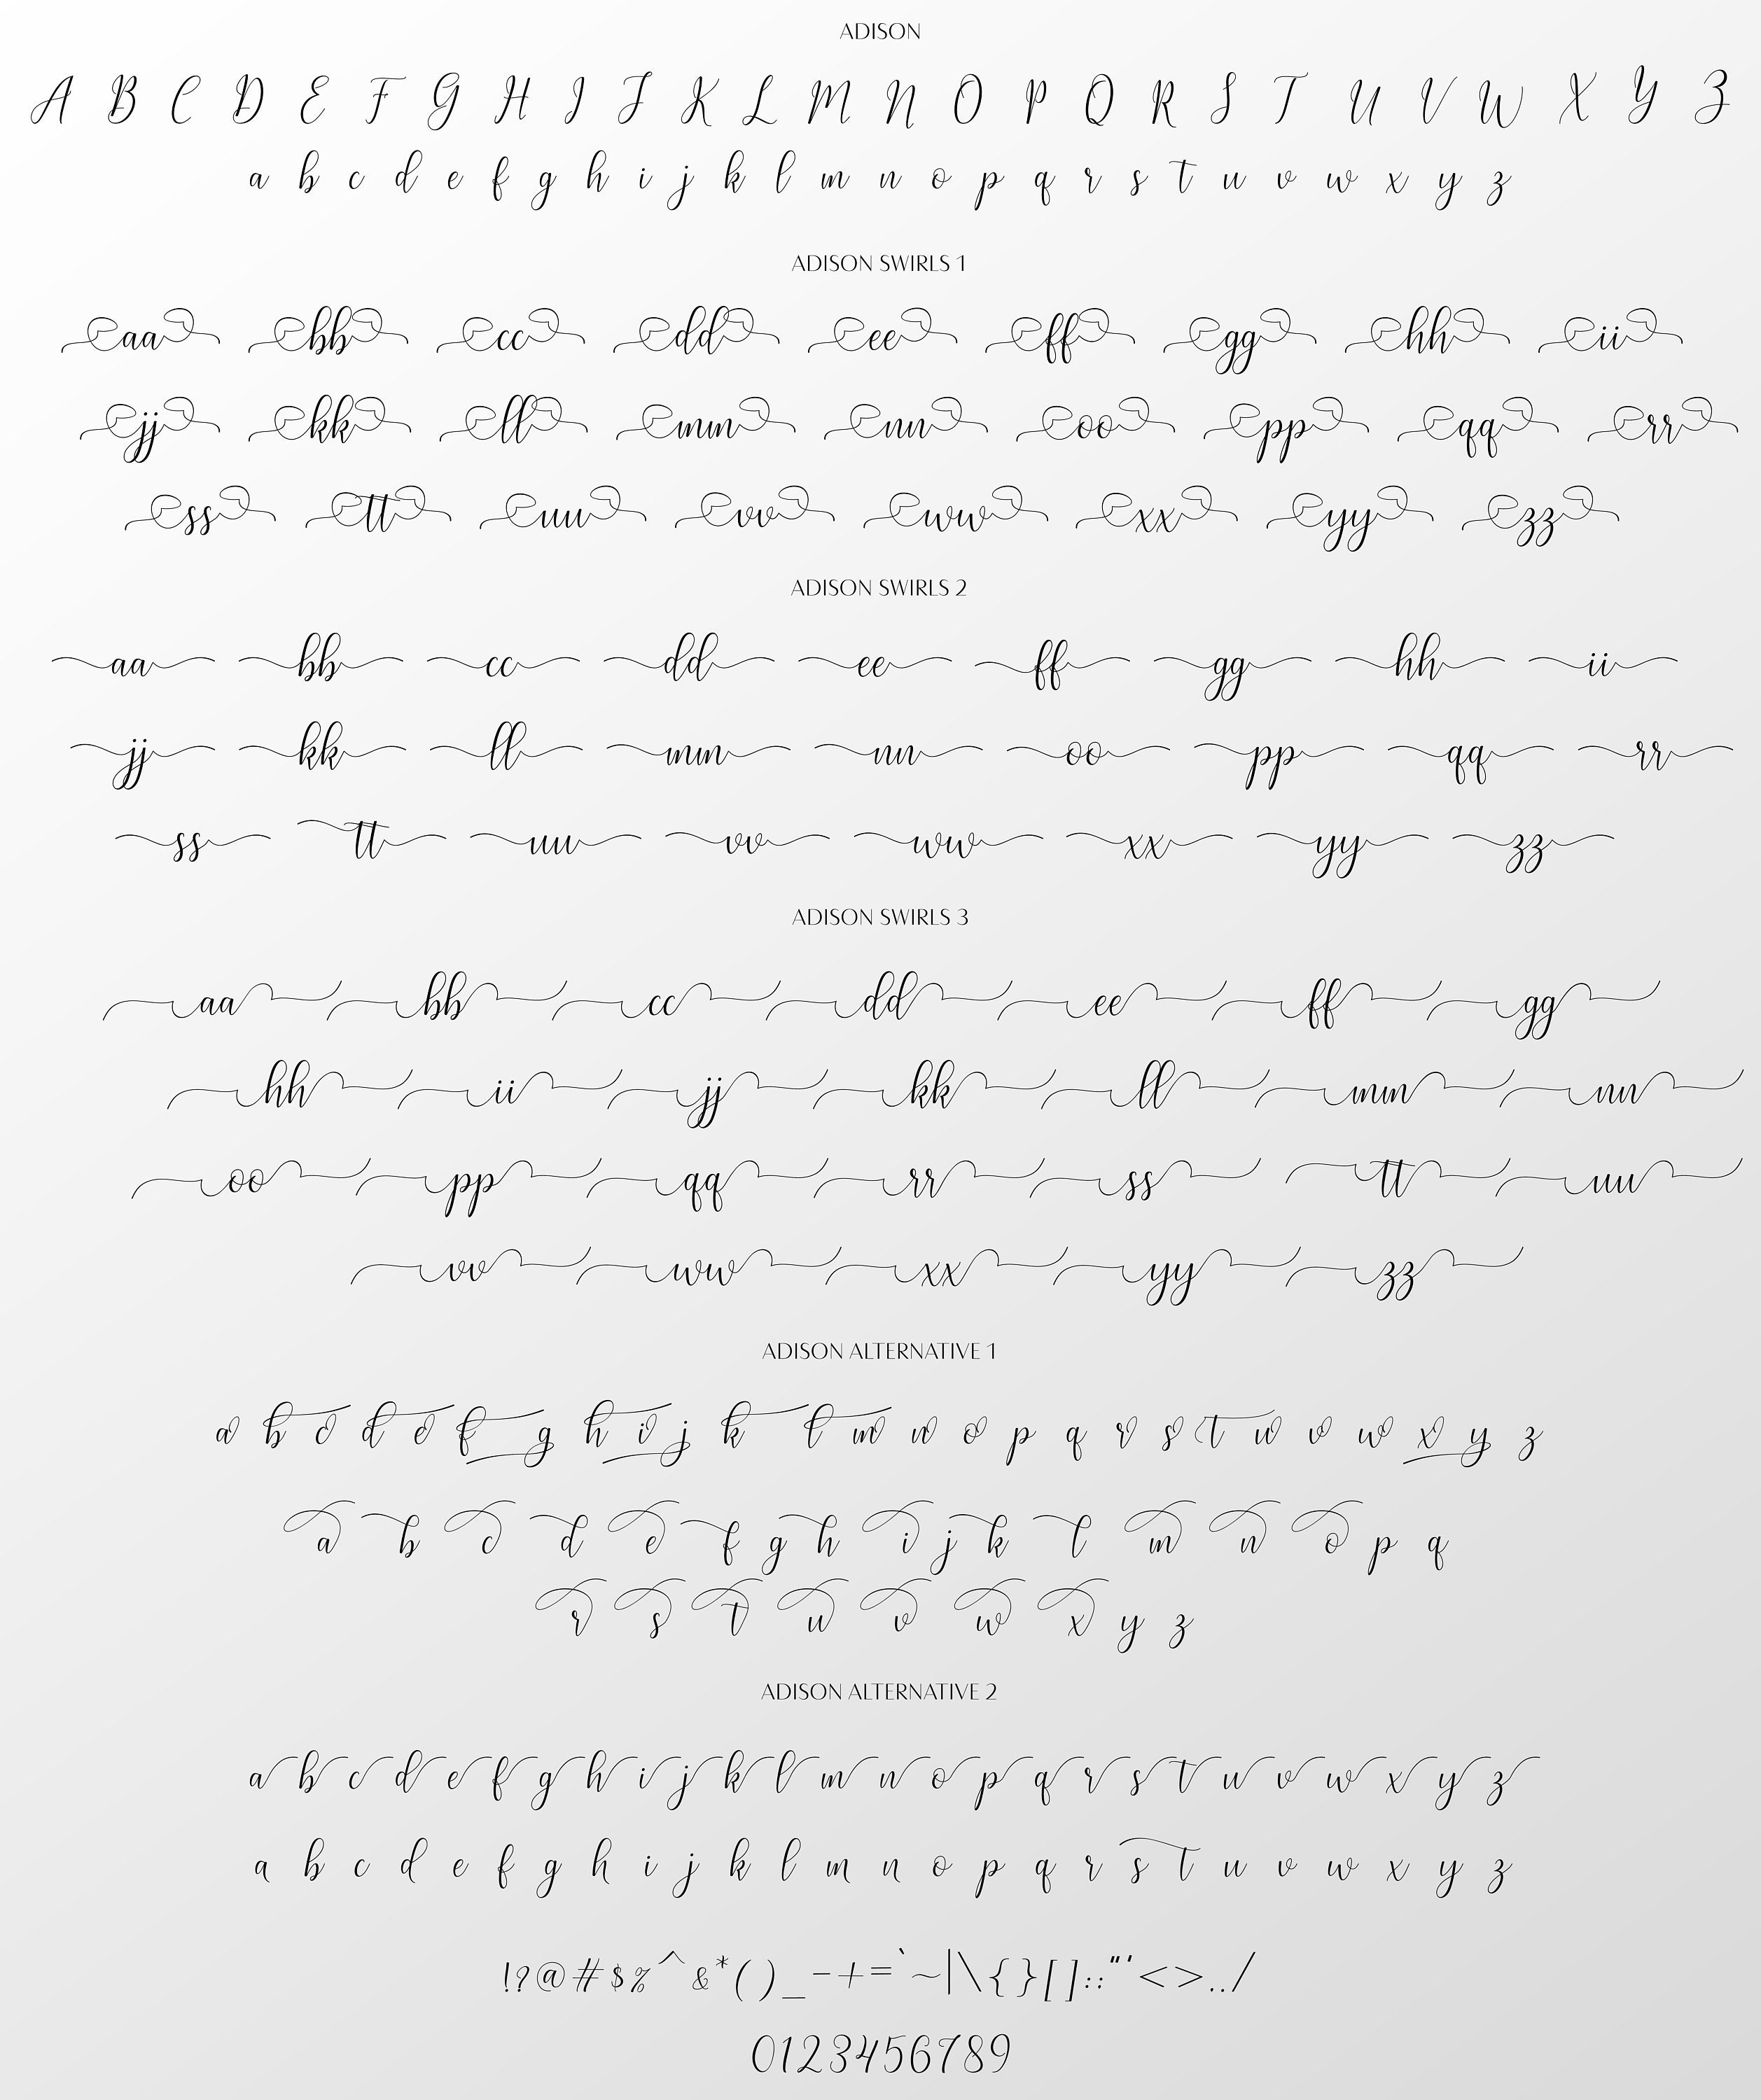 ADISON
A B C D E F G H I J K L M N O P Q R S T U V W X Y Z
a b c d e f g h i j k l m n o p q r s t u v w x y z
ADISON SWIRLS 1
aa bb cc dd ee ff gg hh ii
jj kk ll mm nn oo pp qq rr
ss tt uu vv ww xx yy zz
ADISON SWIRLS 2
aa bb cc dd ee ff gg hh ii
jj kk ll mm nn oo pp qq rr
ss tt uu vv ww xx yy zz
ADISON SWIRLS 3
aa bb cc dd ee ff gg
hh ii jj kk ll mm nn
oo pp qq rr ss tt uu
vv ww xx yy zz
ADISON ALTERNATIVE 1
a b c d e f g h i j k l m n o p q r s t u v w x y z
a b c d e f g h i j k l m n o p q
r s t u v w x y z
ADISON ALTERNATIVE 2
a b c d e f g h i j k l m n o p q r s t u v w x y z
a b c d e f g h i j k l m n o p q r s t u v w x y z
!?@#$%^&*()_-+=`~|\{}[]::"'<>../
0123456789